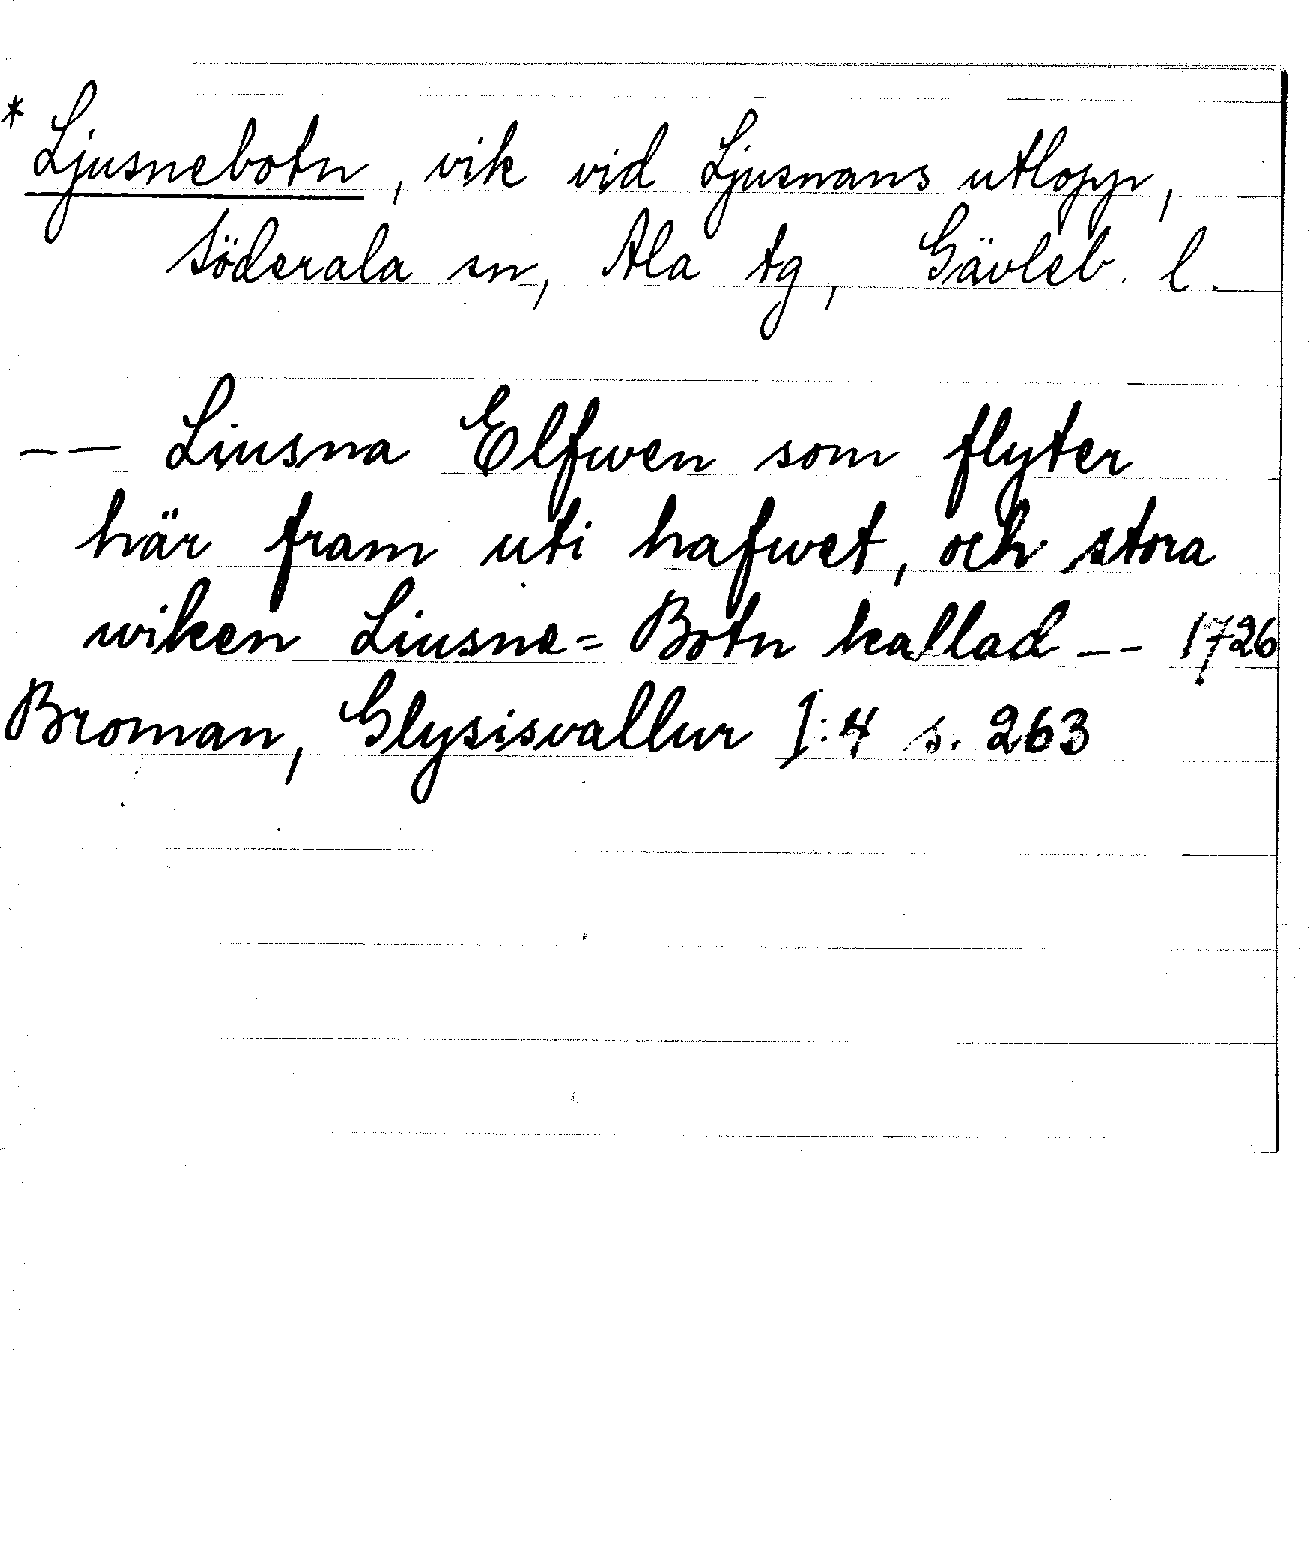 * Ljusnebotn, vik vid Ljusnans utlopp,
Söderala sn, Ala tg, Gävleb. l.
-- Liusna Elfwen som flyter
här fram uti hafwet, och stora
wiken Liusne=Botn kallad -- 1726
Broman, Glysisvallur I:4 s. 263